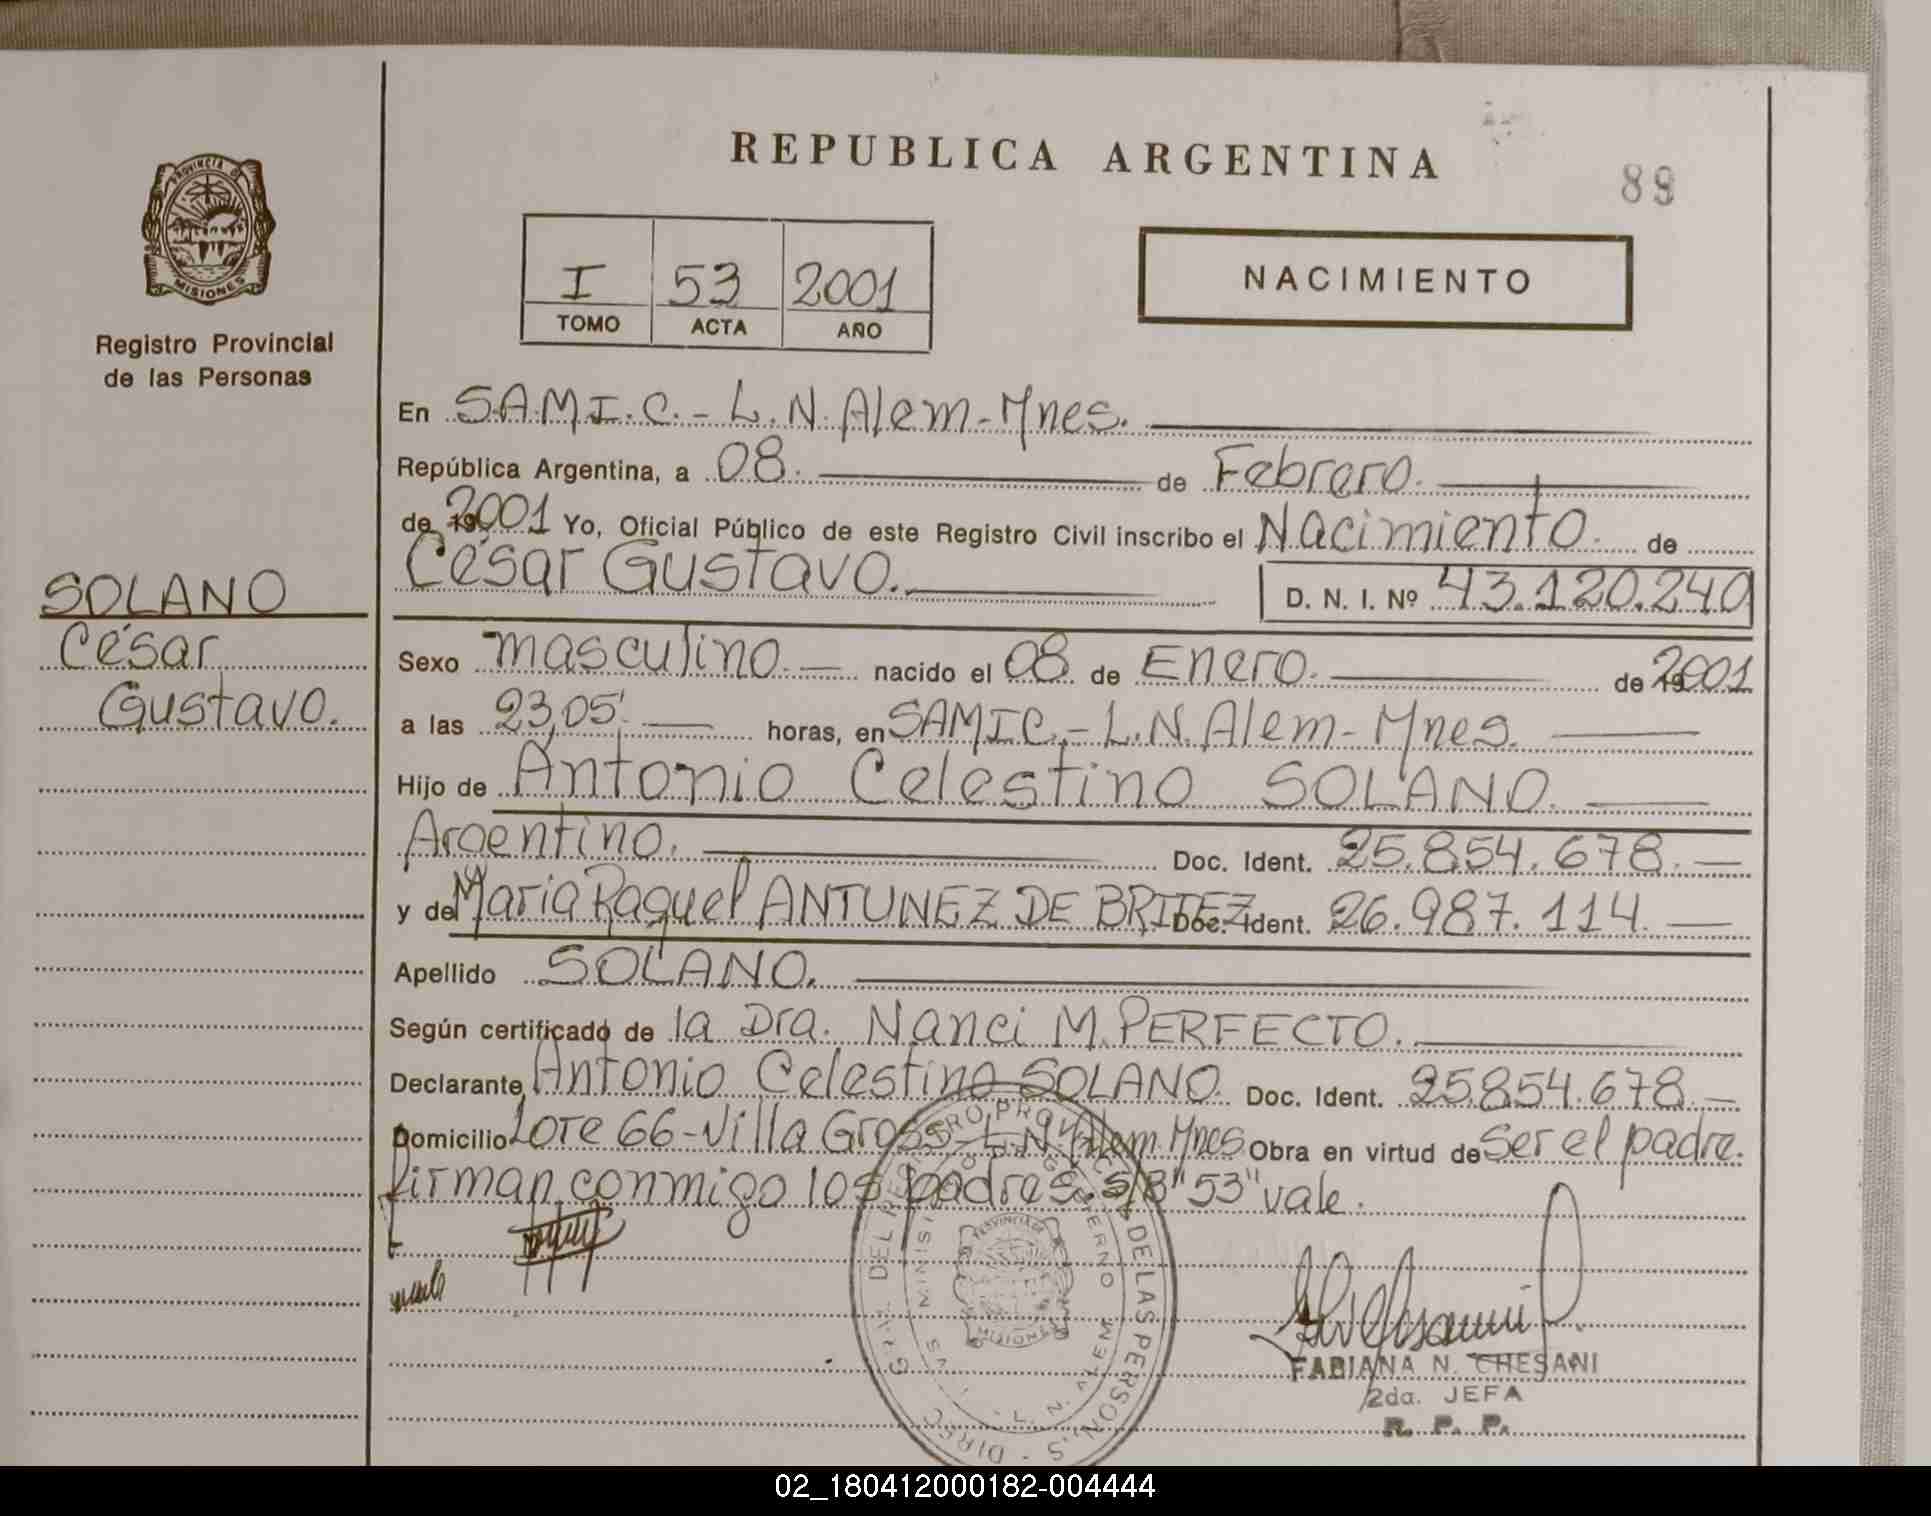 REPUBLICA ARGENTINA
89
PROVINCIA DE
MISIONES
Registro Provincial
de las Personas
I 53 2001
TOMO ACTA AÑO
NACIMIENTO
En S.A.M.I.C.- L.N. Alem-Mnes.
República Argentina, a 08. de Febrero.
de 19 2001 Yo, Oficial Público de este Registro Civil inscribo el Nacimiento. de
César Gustavo. D. N. I. Nº 43.120.240
SOLANO
César
Gustavo.
Sexo masculino. nacido el 08 de Enero. de 19 2001
a las 23,05' horas, en SAMIC.- L.N. Alem- Mnes.
Hijo de Antonio Celestino SOLANO.
Argentino. Doc. Ident. 25.854.678.
y de Maria Raquel ANTUNEZ DE BRITEZ Doc. Ident. 26.987.114.
Apellido SOLANO.
Según certificado de la Dra. Nanci M. PERFECTO.
Declarante Antonio Celestino SOLANO. Doc. Ident. 25.854.678.
Domicilio Lote 66-Villa Gross-L.N. Alem. Mnes Obra en virtud de Ser el padre.
firman conmigo los padres. S/B "53" vale.
FABIANA N. CHESANI
2da. JEFA
R. P. P.
DEL REGISTRO PROVINCIAL DE LAS PERSONAS
MISIONES
02_180412000182-004444